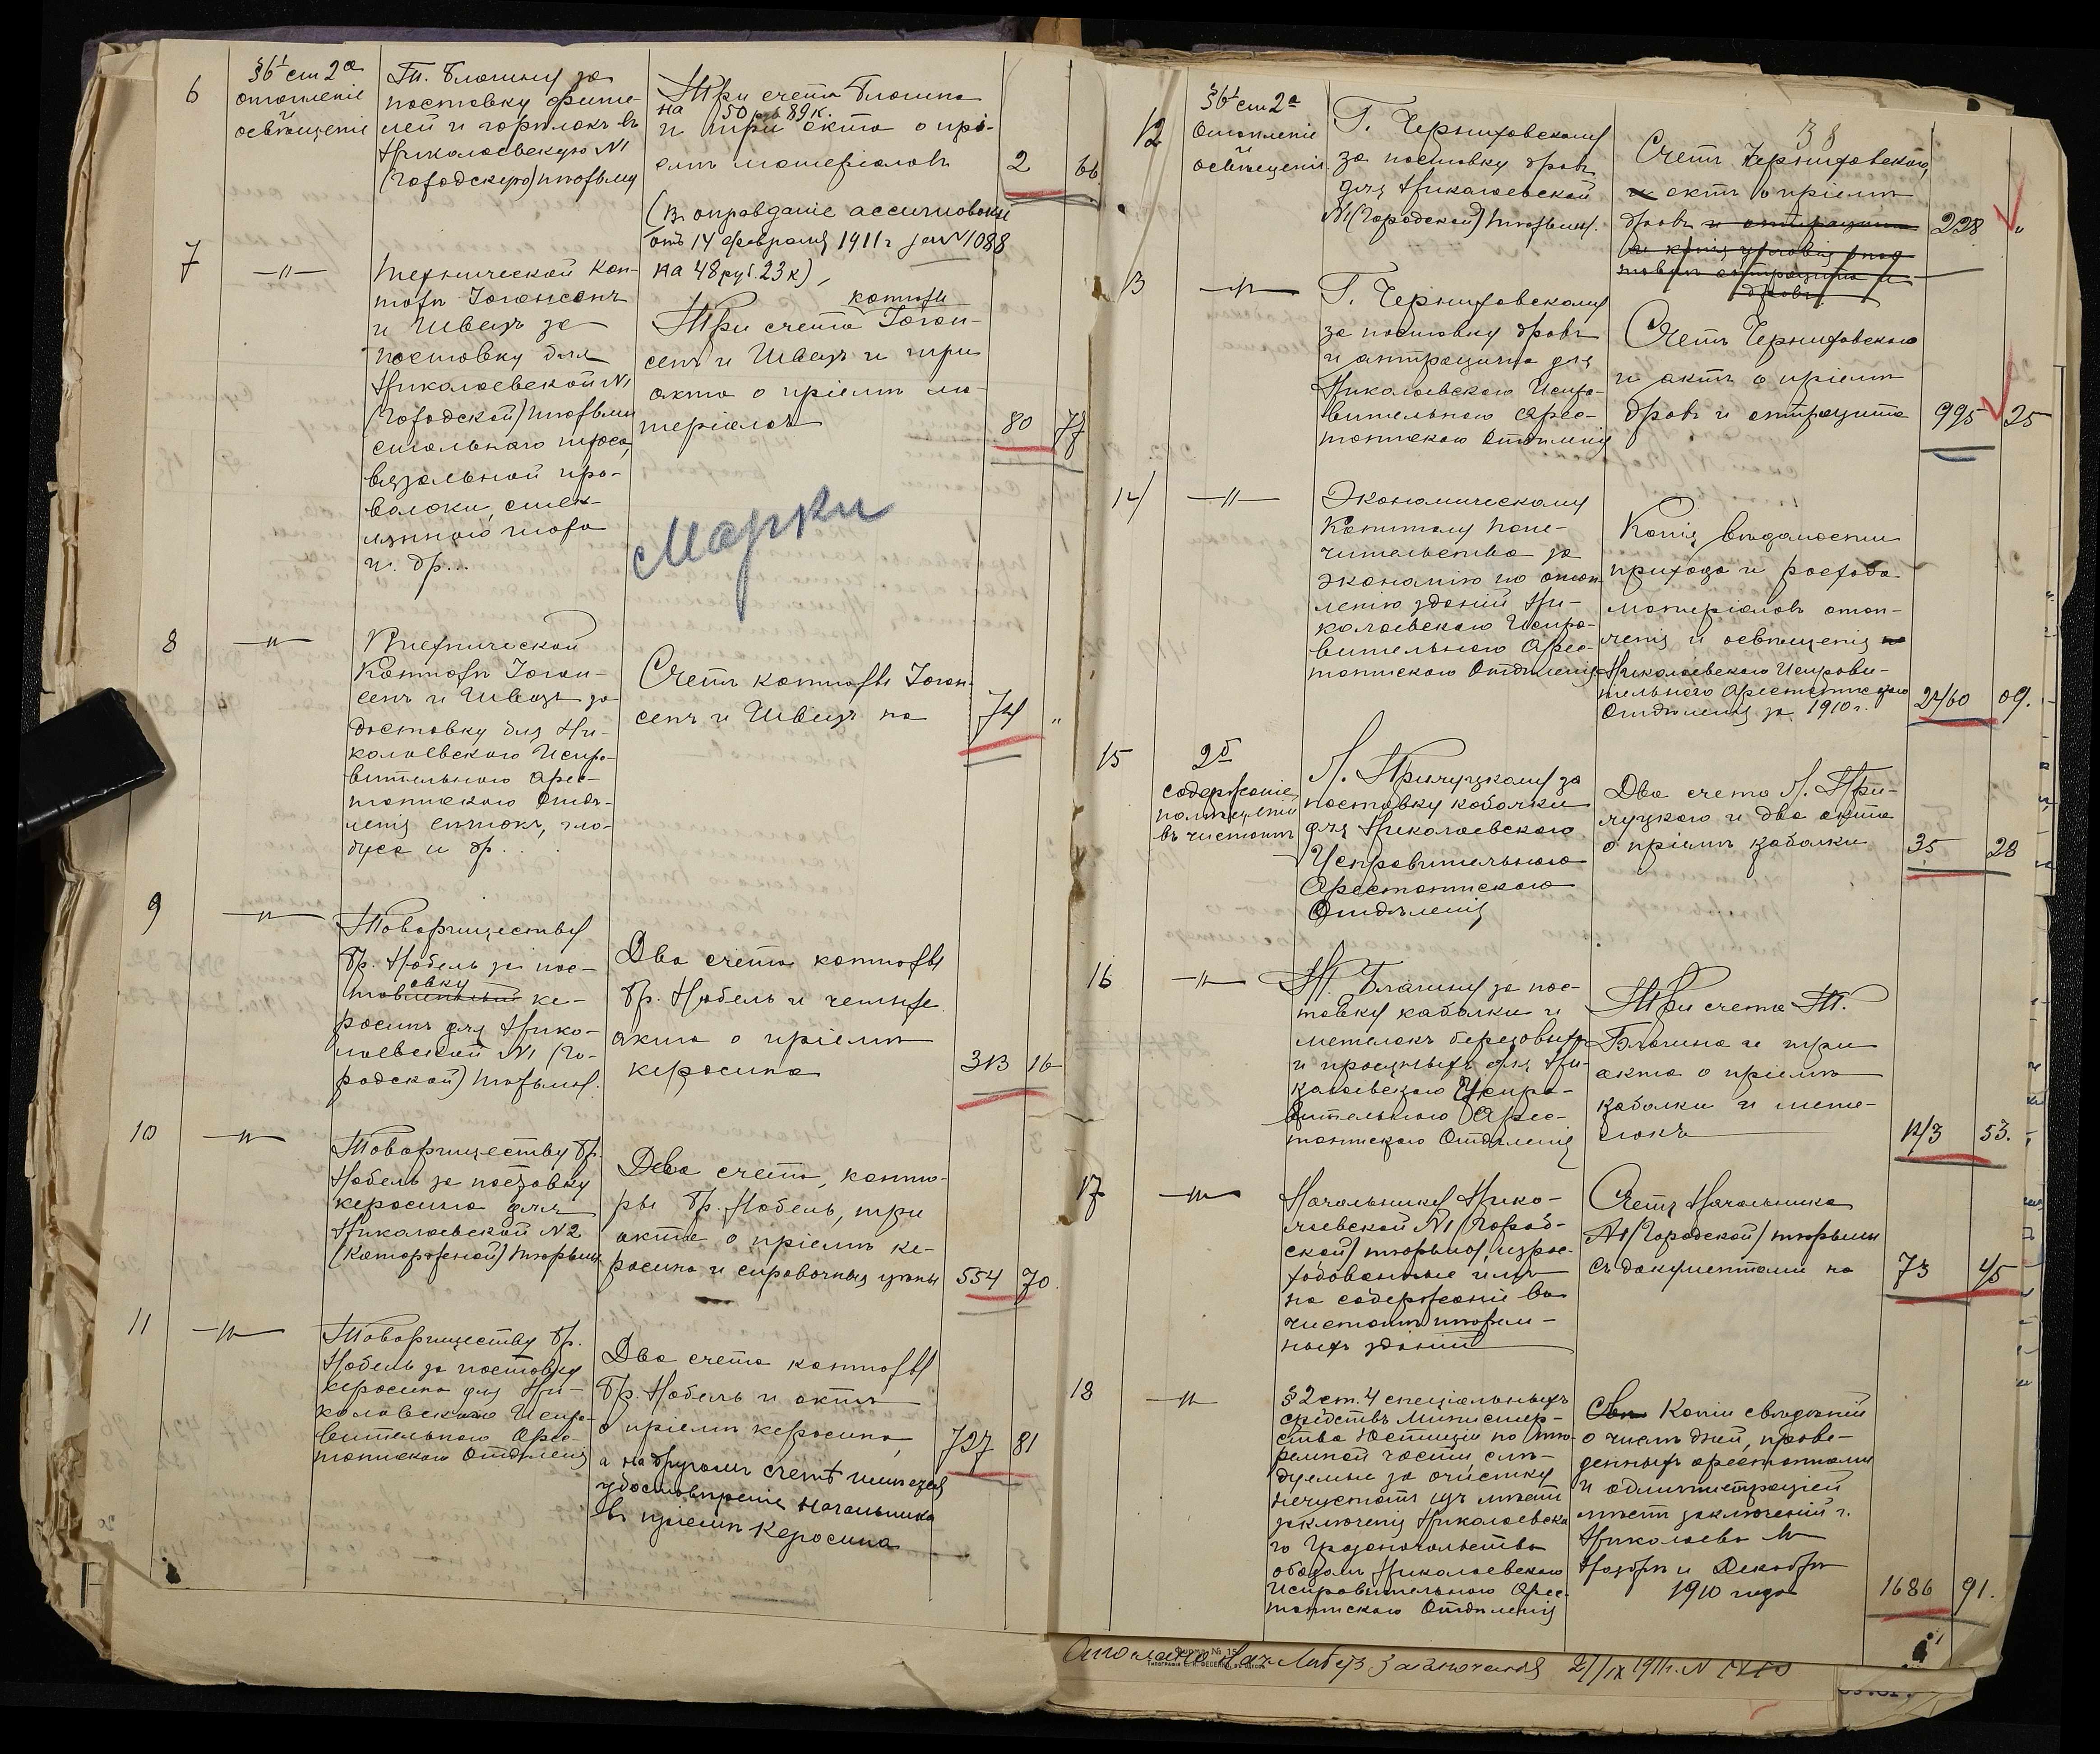 6
§6 ст 2а
отопленіе
и
освѣщеніе
Т. Благину за
поставку фити-
лей и горѣлокъ въ
Николаевскую №1
(Городскую) тюрьму
Три счета Благина
на 50 руб 89 к.
и три акта о прі-
емѣ матеріаловъ
2 66.
(въ оправданіе ассигновки
отъ 14 февраля 1911 г за №1088
на 48 руб. 23 к)
7
—"—
Технической кон-
торѣ Іогансенъ
и Швецъ за
поставку для
Николаевской №1
(Городской) тюрьмы
смольнаго троса,
вязальной про-
волоки, стек-
ляннаго
и др...
конторы
Три счета Іоган-
сенъ и Швецъ и три
акта о пріемѣ ма-
теріаловъ
80 77
Марки
8
—"—
Технической
Конторѣ Іоган-
сенъ и Швецъ за
доставку для Ни-
колаевскаго Испра-
вительнаго Арес-
тантскаго Отдѣ-
ленія сѣтокъ, гло-
буса и др. . .
Счетъ конторы Іоган-
сенъ и Швецъ на
74 "
9
—"—
Товариществу
Бр. Нобель за пос-
овку
ке-
росина для Нико-
лаевской №1 (Го-
родской) тюрьмы.
Два счета конторы
Бр. Нобель и четыре
акта о пріемѣ
керосина
313 16
10
—"—
Товариществу Бр.
Нобель за поставку
керосина для
Николаевской №2
(Каторжной) тюрьмы
Два счета, конто-
ры Бр. Нобель, три
акта о пріемѣ ке-
росина и справочныя цѣны
554 70.
11
—"—
Товариществу Бр.
Нобель за поставку
керосина для Ни-
колаевскаго Испра-
вительнаго Арес-
тантскаго Отдѣленія
Два счета конторы
Бр. Нобель и актъ
о пріемѣ керосина,
а на другомъ счетѣ имѣется
удостовѣреніе Начальника
въ пріемѣ Керосина
727 81
38
12
§6 ст 2а
Отопленіе
и
освѣщеніе
Г. Черниховскому
за поставку дровъ
для Николаевской
№1 (Городской) тюрьмы.
Счетъ Черниховскаго,
и актъ о пріемѣ
дровъ и антрацита
и копія условія
дровъ
228 "
13
—"—
Г. Черниховскому
за поставку дровъ
и антрацита для
Николаевскаго Испра-
вительнаго Арес-
тантскаго Отдѣленія
Счетъ Черниховскаго
и актъ о пріемѣ
дровъ и антрацита
995 25
14
—"—
Экономическому
Капиталу Попе-
чительства за
экономію по отоп-
ленію зданій Ни-
колаевскаго Испра-
вительнаго Арес-
тантскаго Отдѣленія
Копія вѣдомости
прихода и расхода
матеріаловъ отоп-
ленія и освѣщенія
Николаевскаго Исправи-
тельнаго Арестантскаго
Отдѣленія за 1910 г.
2460 09.
15
2б
содержаніе
помѣщеній
въ чистотѣ
Л. Прилуцкому за
поставку каболки
для Николаевскаго
Исправительнаго
Арестантскаго
Отдѣленія
Два счета Л. При-
луцкаго и два акта
о пріемѣ каболки
35 28
16
—"—
Т. Благину за пос-
тавку каболки и
метелокъ березовыхъ
и просяныхъ для Ни-
колаевскаго Испра-
вительнаго Арес-
тантскаго Отдѣленія
Три счета Т.
Благина и три
акта о пріемѣ
каболки и мете-
локъ
143 53.
17
—"—
Начальнику Нико-
лаевской №1 (Город-
ской) тюрьмы, израс-
ходованные имъ
на содержаніе въ
чистотѣ тюрем-
ныхъ зданій
Счетъ Начальника
№1 (Городской) тюрьмы
съ документами на
73 45
18
—"—
§ 2 ст. 4 спеціальныхъ
средствъ Министер-
ства Юстиціи по тю-
ремной части, слѣ-
дуемые за очистку
нечистотъ изъ мѣстъ
заключенія Николаевска-
го Градоначальства
обозомъ Николаевскаго
Исправительнаго Арес-
тантскаго Отдѣленія
Копіи свѣдѣній
о числѣ дней, прове-
денныхъ арестантами
и администраціей
мѣстъ заключеній г.
Николаева въ
Ноябрѣ и Декабрѣ
1910 года
1686 91.
Отослано Нач. Заключенія 21/IX 1911 г. №